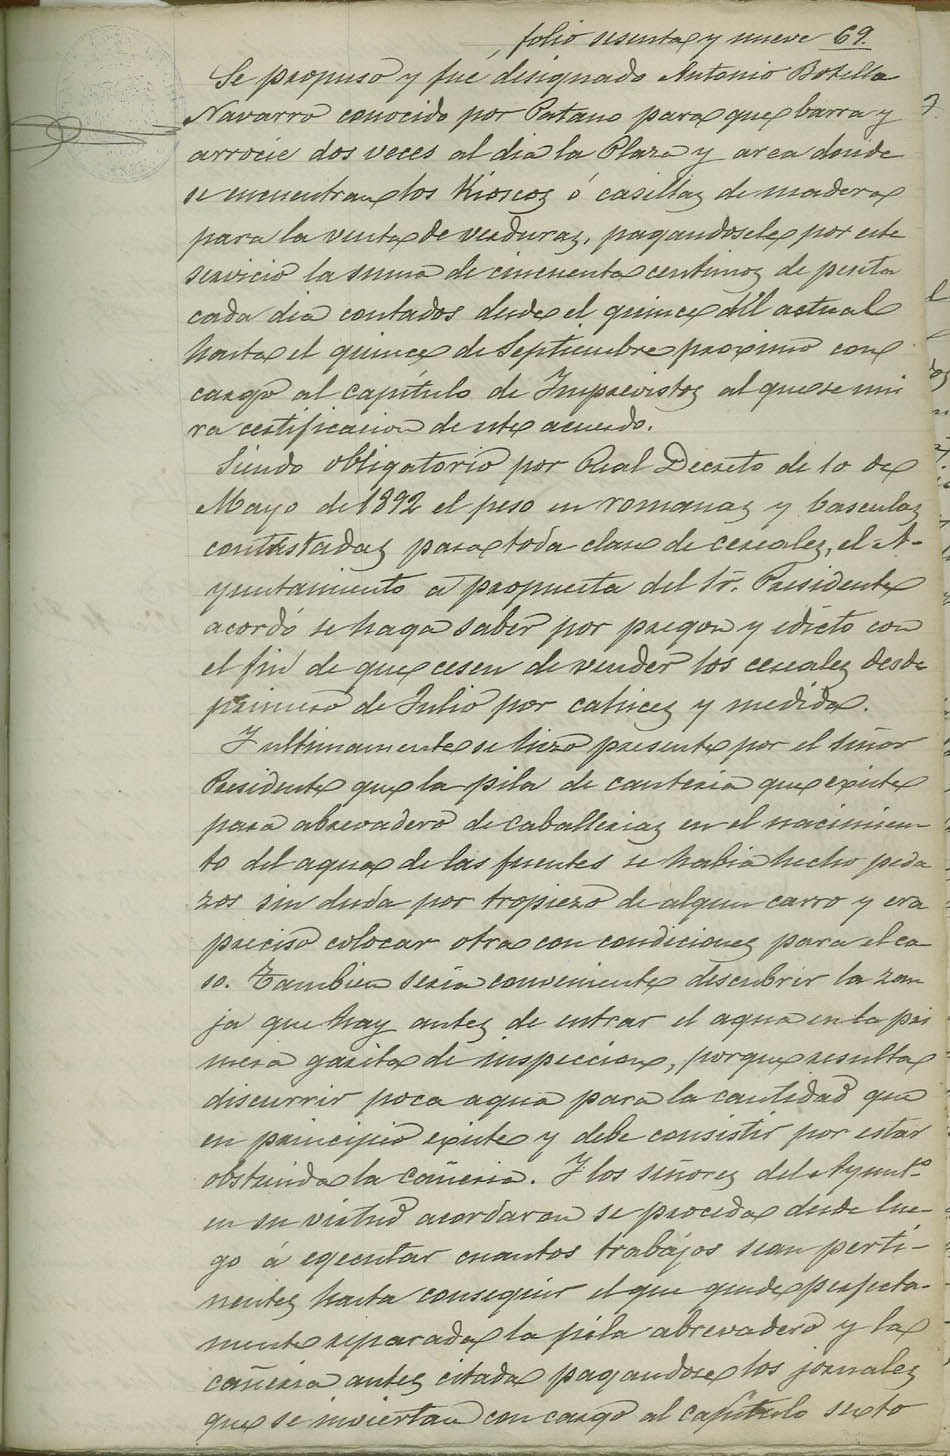 folio sesenta y nueve 69.
Se propuso y fué designado Antonio Botella
Navarro conocido por Patano para que barra y
arrocie dos veces al dia la Plaza y area donde
se encuentran los Kioscos ó casillas de madera
para la venta de verduras, pagandosele por este
servicio la suma de cincuenta centimos de peseta
cada dia contados desde el quince del actual
hasta el quince de Septiembre proximo con
cargo al capítulo de Imprevistos al que se uni
ra certificacion de este acuerdo.
Siendo obligatorio por Real Decreto de 10 de
Mayo de 1892 el peso en romanas y basculas
contrastadas para toda clase de cereales, el A-
yuntamiento a propuesta del Sr. Presidente
acordó se haga saber por pregon y edicto con
el fin de que cesen de vender los cereales desde
primero de Julio por cahices y medida.
Y ultimamente se hizo presente por el Señor
Presidente que la pila de canteria que existe
para abrevadero de caballerias en el nacimien-
to del agua de las fuentes se habia hecho peda
zos sin duda por tropiezo de algun carro y era
preciso colocar otra con condiciones para el ca-
so. Tambien seria conveniente descubrir la zan
ja que hay antes de entrar el agua en la pri
mera garita de inspeccion, porque resulta
discurrir poca agua para la cantidad que
en principio existe y debe consistir por estar
obstruida la cañeria. Y los señores del Ayunt.º
en su virtud acordaron se proceda desde lue-
go á egecutar cuantos trabajos sean perti-
nentes hasta conseguir el que quede perfecta-
mente reparada la pila abrevadero y la
cañeria antes citada pagandose los jornales
que se inviertan con cargo al capítulo sexto